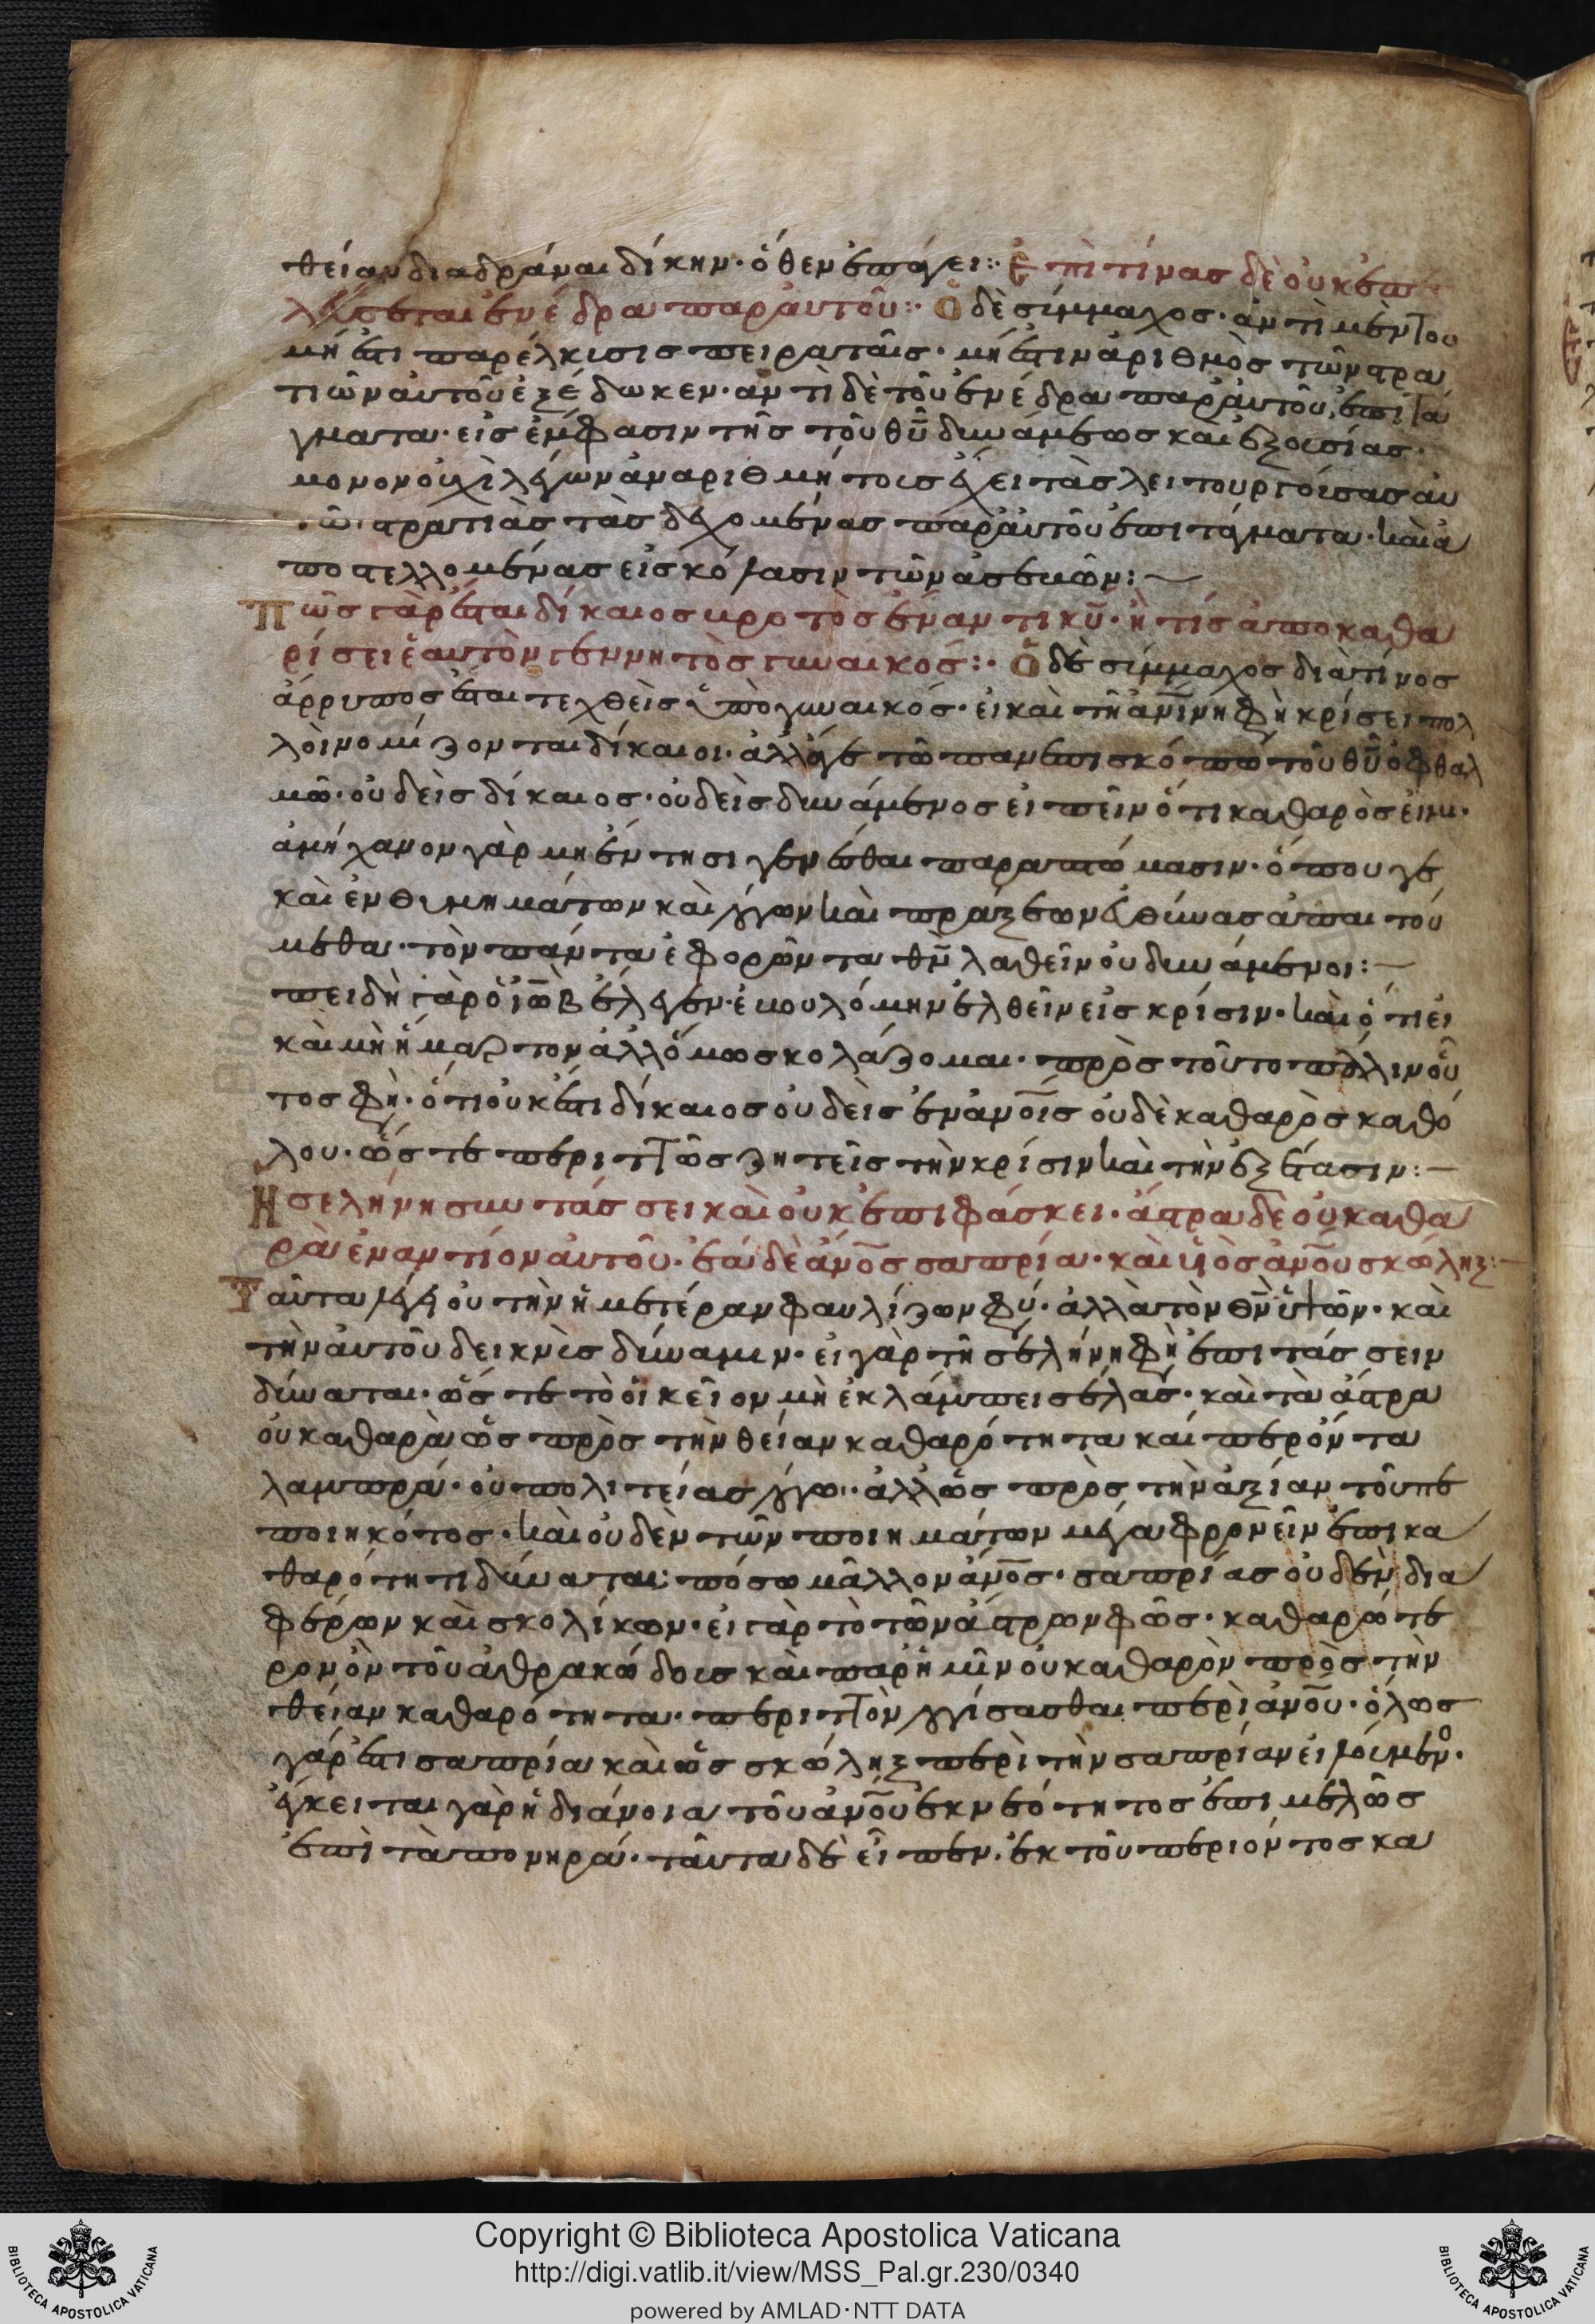 θείαν διαδράναι δίκην· ὅθεν ἐπάγει:· Ἐπὶ τίνας δὲ οὐκ ἐπε
λεύσεται ἔνεδρα παρ' αὐτοῦ:· Ὁ δὲ σύμμαχος· ἀντὶ μὲν του
μή ἐστι παρέλκυσις πειραταῖς· μή ἐστιν ἀριθμὸς τῶν στρα
τιῶν αὐτοῦ ἐξέδωκεν· ἀντὶ δὲ τοῦ ἔνεδρα παρ' αὐτοῦ, ἐπιτά
γματα· εἰς ἔμφασιν τῆς τοῦ θῦ δυνάμεως καὶ ἐξουσίας·
μονονουχὶ λέγων ἀναριθμήτους ἔχει τὰς λειτουργούσας αὐ
τῶ στρατιὰς τὰς δεχομένας παρ' αὐτοῦ ἐπιτάγματα· καὶ ἀ
ποστελλομένας εἰς κόλασιν τῶν ἀσεβῶν:
Πῶς γὰρ ἔσται δίκαιος βροτὸς ἔναντι κῦ· ἢ τίς ἀποκαθα
ρίσει ἑαυτὸν γεννητὸς γυναικός:· Ὁ δὲ σύμμαχος διὰ τίνος
ἄρρυπος ἔσται τεχθεὶς ὑπὸ γυναικός· εἰ καὶ τῆ ἀνίνη φὴ κρίσει πολ
λοὶ νομίζονται δίκαιοι· ἀλλ' ὅγε τῶ πανεπισκόπω τοῦ θῦ ὀφθαλ
μῶ· οὐδεὶς δίκαιος· οὐδεὶς δυνάμενος εἰπεῖν ὅτι καθαρός εἰμι·
ἀμήχανον γὰρ μὴ ἔν τησι γενέσθαι παραπτώμασιν· ὅπου γε
καὶ ἐνθυμημάτων καὶ λόγων καὶ πράξεων εὐθύνας ἀπαιτού
μεθα· τὸν πάντα ἐφορῶντα θῦ λαθεῖν οὐ δυνάμενοι:
πειδὴ γὰρ ὁ ἰὼβ ἔλεγεν· ἐβουλόμην ἐλθεῖν εἰς κρίσιν· καὶ ὅτι εἰ
καὶ μὴ ἥμαρτον ἀλλ' ὅμως κολάζομαι· πρὸς τοῦτο πάλιν οὗ
τος φὴ· ὅτι οὐκ ἔστι δίκαιος οὐδεὶς ἐν ἀνοῖς οὐδὲ καθαρὸς καθό
λου· ὥστε περιττῶς ζητεῖς τὴν κρίσιν καὶ τὴν ἐξέτασιν:
Ἡ σελήνη συντάσσει καὶ οὐκ ἐπιφάσκει· ἄστρα δὲ οὐ καθα
ρὰ ἐναντίον αὐτοῦ· ἔα δὲ ἄνος σαπρία· καὶ υἱὸς ἀνου σκώληξ:
Ταῦτα λέγει οὐ τὴν ἡμετέραν φαύλίζων φύ· ἀλλὰ τὸν θν ὑψῶν· καὶ
τὴν αὐτοῦ δεικνὺς δύναμιν· εἰ γὰρ τῆ σελήνη φὴ ἐπιτάσσειν
δύναται· ὥστε τὸ οἰκεῖον μὴ ἐκλάμπει σέλας· καὶ τὰ ἄστρα
οὐ καθαρὰ ὡς πρὸς τὴν θείαν καθαρότητα καίπερ ὄντα
λαμπρά· οὐ πολιτείας λόγω· ἀλλ' ὡς πρὸς τὴν ἀξίαν τοῦ πε
ποιηκότος· καὶ οὐδὲν τῶν ποιημάτων μέγα φρονεῖν ἐπι κα
θαρότητι δύναται· πόσω μᾶλλον ἄνος· σαπρίας οὐδὲν δια
φέρων καὶ σκολίκων· εἰ γὰρ τὸ τῶν ἄστρων φῶς· καθαρώτε
ρον ὂν τοῦ ἀθρακώδους καὶ παρ' ἡμῖν οὐ καθαρὸν πρὸς τὴν
θείαν καθαρότητα· περιττὸν λογίσασθαι περὶ ἀνου· ὅλως
γάρ ἐστι σαπρία καὶ ὡς σκώληξ περὶ τὴν σαπρίαν εἰλούμενο·
ἔγκειται γὰρ ἡ διάνοια τοῦ ἀνου ἐκ νεότητος ἐπιμελῶς
ἐπὶ τὰ πονηρά· ταῦτα δὲ εἶπεν· ἐκ τοῦ περιόντος κα
Copyright © Biblioteca Apostolica Vaticana
http://digi.vatlib.it/view/MSS_Pal.gr.230/0340
powered by AMLAD·NTT DATA
BIBLIOTECA APOSTOLICA VATICANA
BIBLIOTECA APOSTOLICA VATICANA